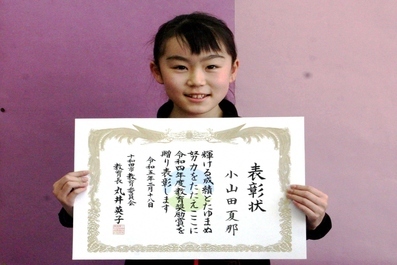 表彰状
小山田夏那
輝ける成績とたゆまぬ
努力をたたえここに
令和四年度教育奨励賞を
贈り表彰します
令和五年二月十八日
十和田市教育委員会
教育長 丸井英子